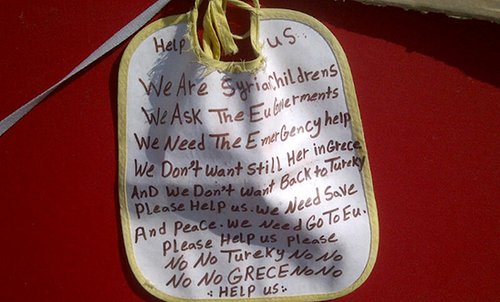 Help us:
We Are Syria Childrens
We Ask The Eu Goverments
We Need The EmerGency help
We Don't want still Her in Grece
AnD We Don't want Back to Tureky
Please Help us. We Need Save
And Peace. We Need GoTo Eu.
Please Help us please
No No Tureky No No
No No GRECE No No
: HELP us :